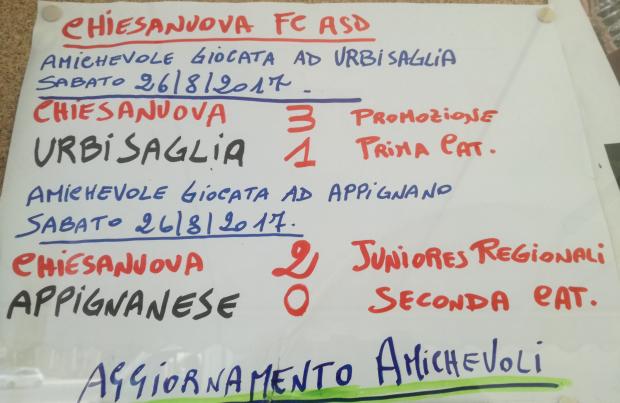 CHIESANUOVA FC ASD
AMICHEVOLE GIOCATA AD URBISAGLIA
SABATO 26/8/2017.
CHIESANUOVA 3 PROMOZIONE
URBISAGLIA 1 PRIMA CAT.
AMICHEVOLE GIOCATA AD APPIGNANO
SABATO 26/8/2017.
CHIESANUOVA 2 JUNIORES REGIONALI
APPIGNANESE 0 SECONDA CAT.
AGGIORNAMENTO AMICHEVOLI